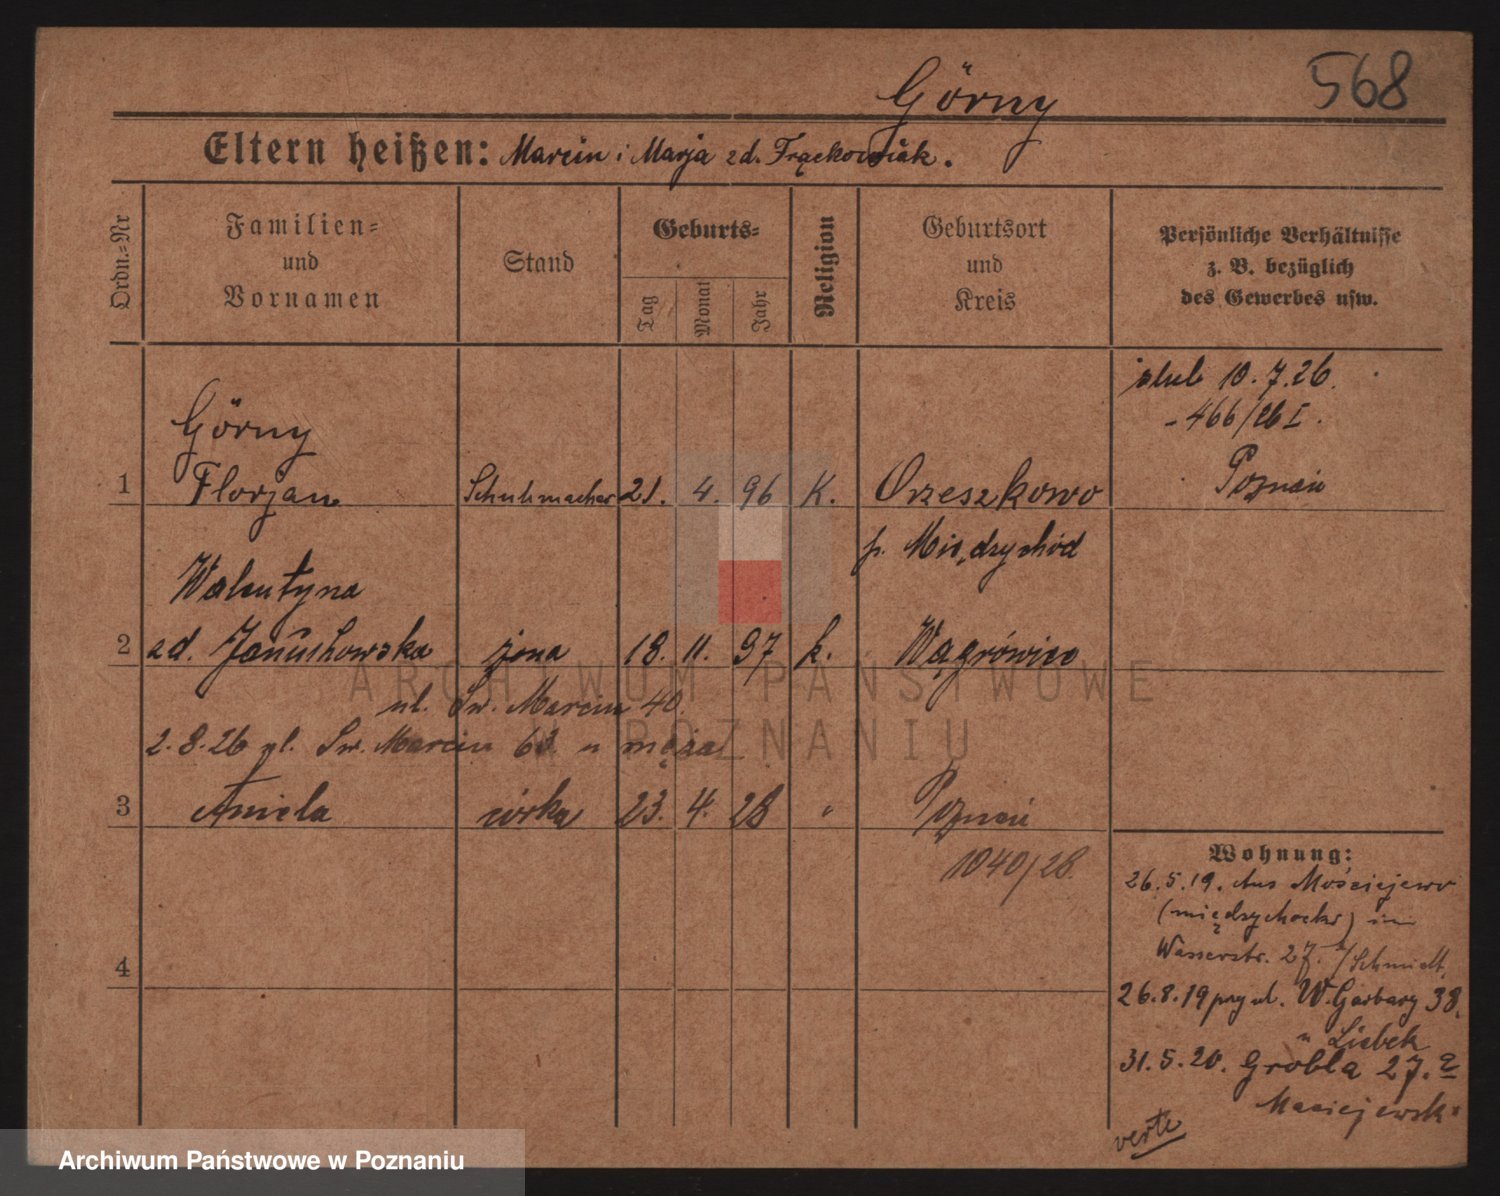 568
Görny
Eltern heißen: Marcin i Marja zd. Frąckowiak.
Ordn.-Nr
Familien-
und
Vornamen
Stand
Geburts-
Tag
Monat
Jahr
Religion
Geburtsort
und
Kreis
Persönliche Verhältnisse
z. B. bezüglich
des Gewerbes usw.
ślub 10.7.26.
- 466/26 I.
Poznań
Görny
1 Florjan Schuhmacher 21. 4. 96 K. Orzeszkowo
p. Międzychód
Walentyna
2 zd. Januchowska żona 18. 11. 97 k. Wągrówiec
ul. Św. Marcin 40.
2.8.26 ul. Św. Marcin 63 u męża
3 Aniela córka 23. 4. 28 " Poznań
1040/28.
4
Wohnung:
26.5.19. Aus Mościejewo
(międzychodu) im
Wasserstr. 27. b/Schmidt.
26.8.19 przy ul. W. Garbary 38.
u Lisbek
31.5.20. Grobla 27. a
Maciejewski
verte
ARCHIWUM PAŃSTWOWE
W POZNANIU
Archiwum Państwowe w Poznaniu